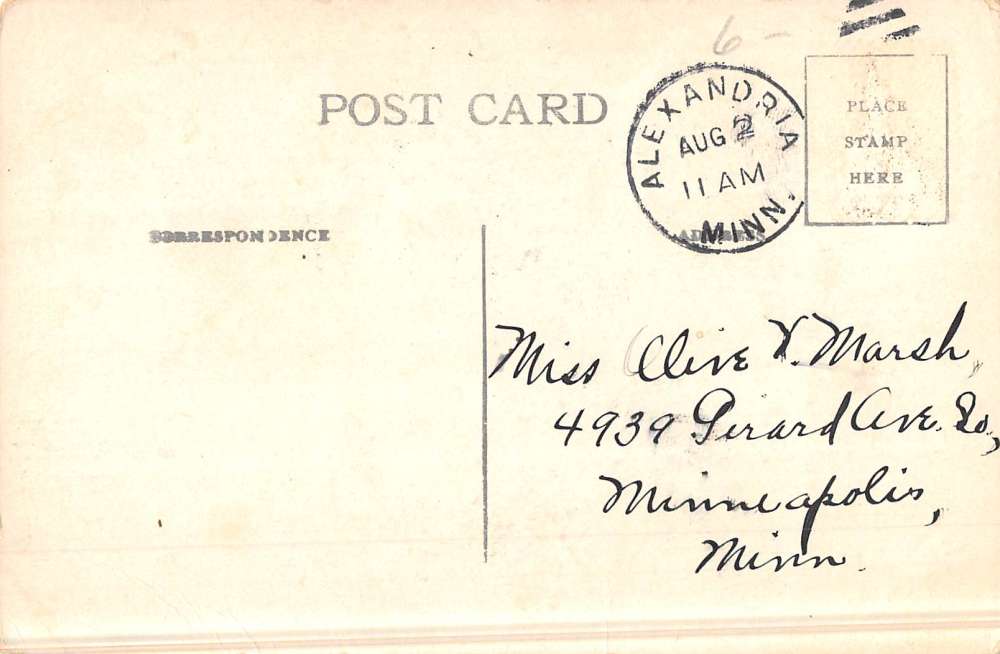 6-
POST CARD
ALEXANDRIA
AUG 2
11 AM
MINN.
PLACE
STAMP
HERE
CORRESPONDENCE
ADDRESS
Miss Olive V. Marsh,
4939 Girard Ave. So,
Minneapolis,
Minn.